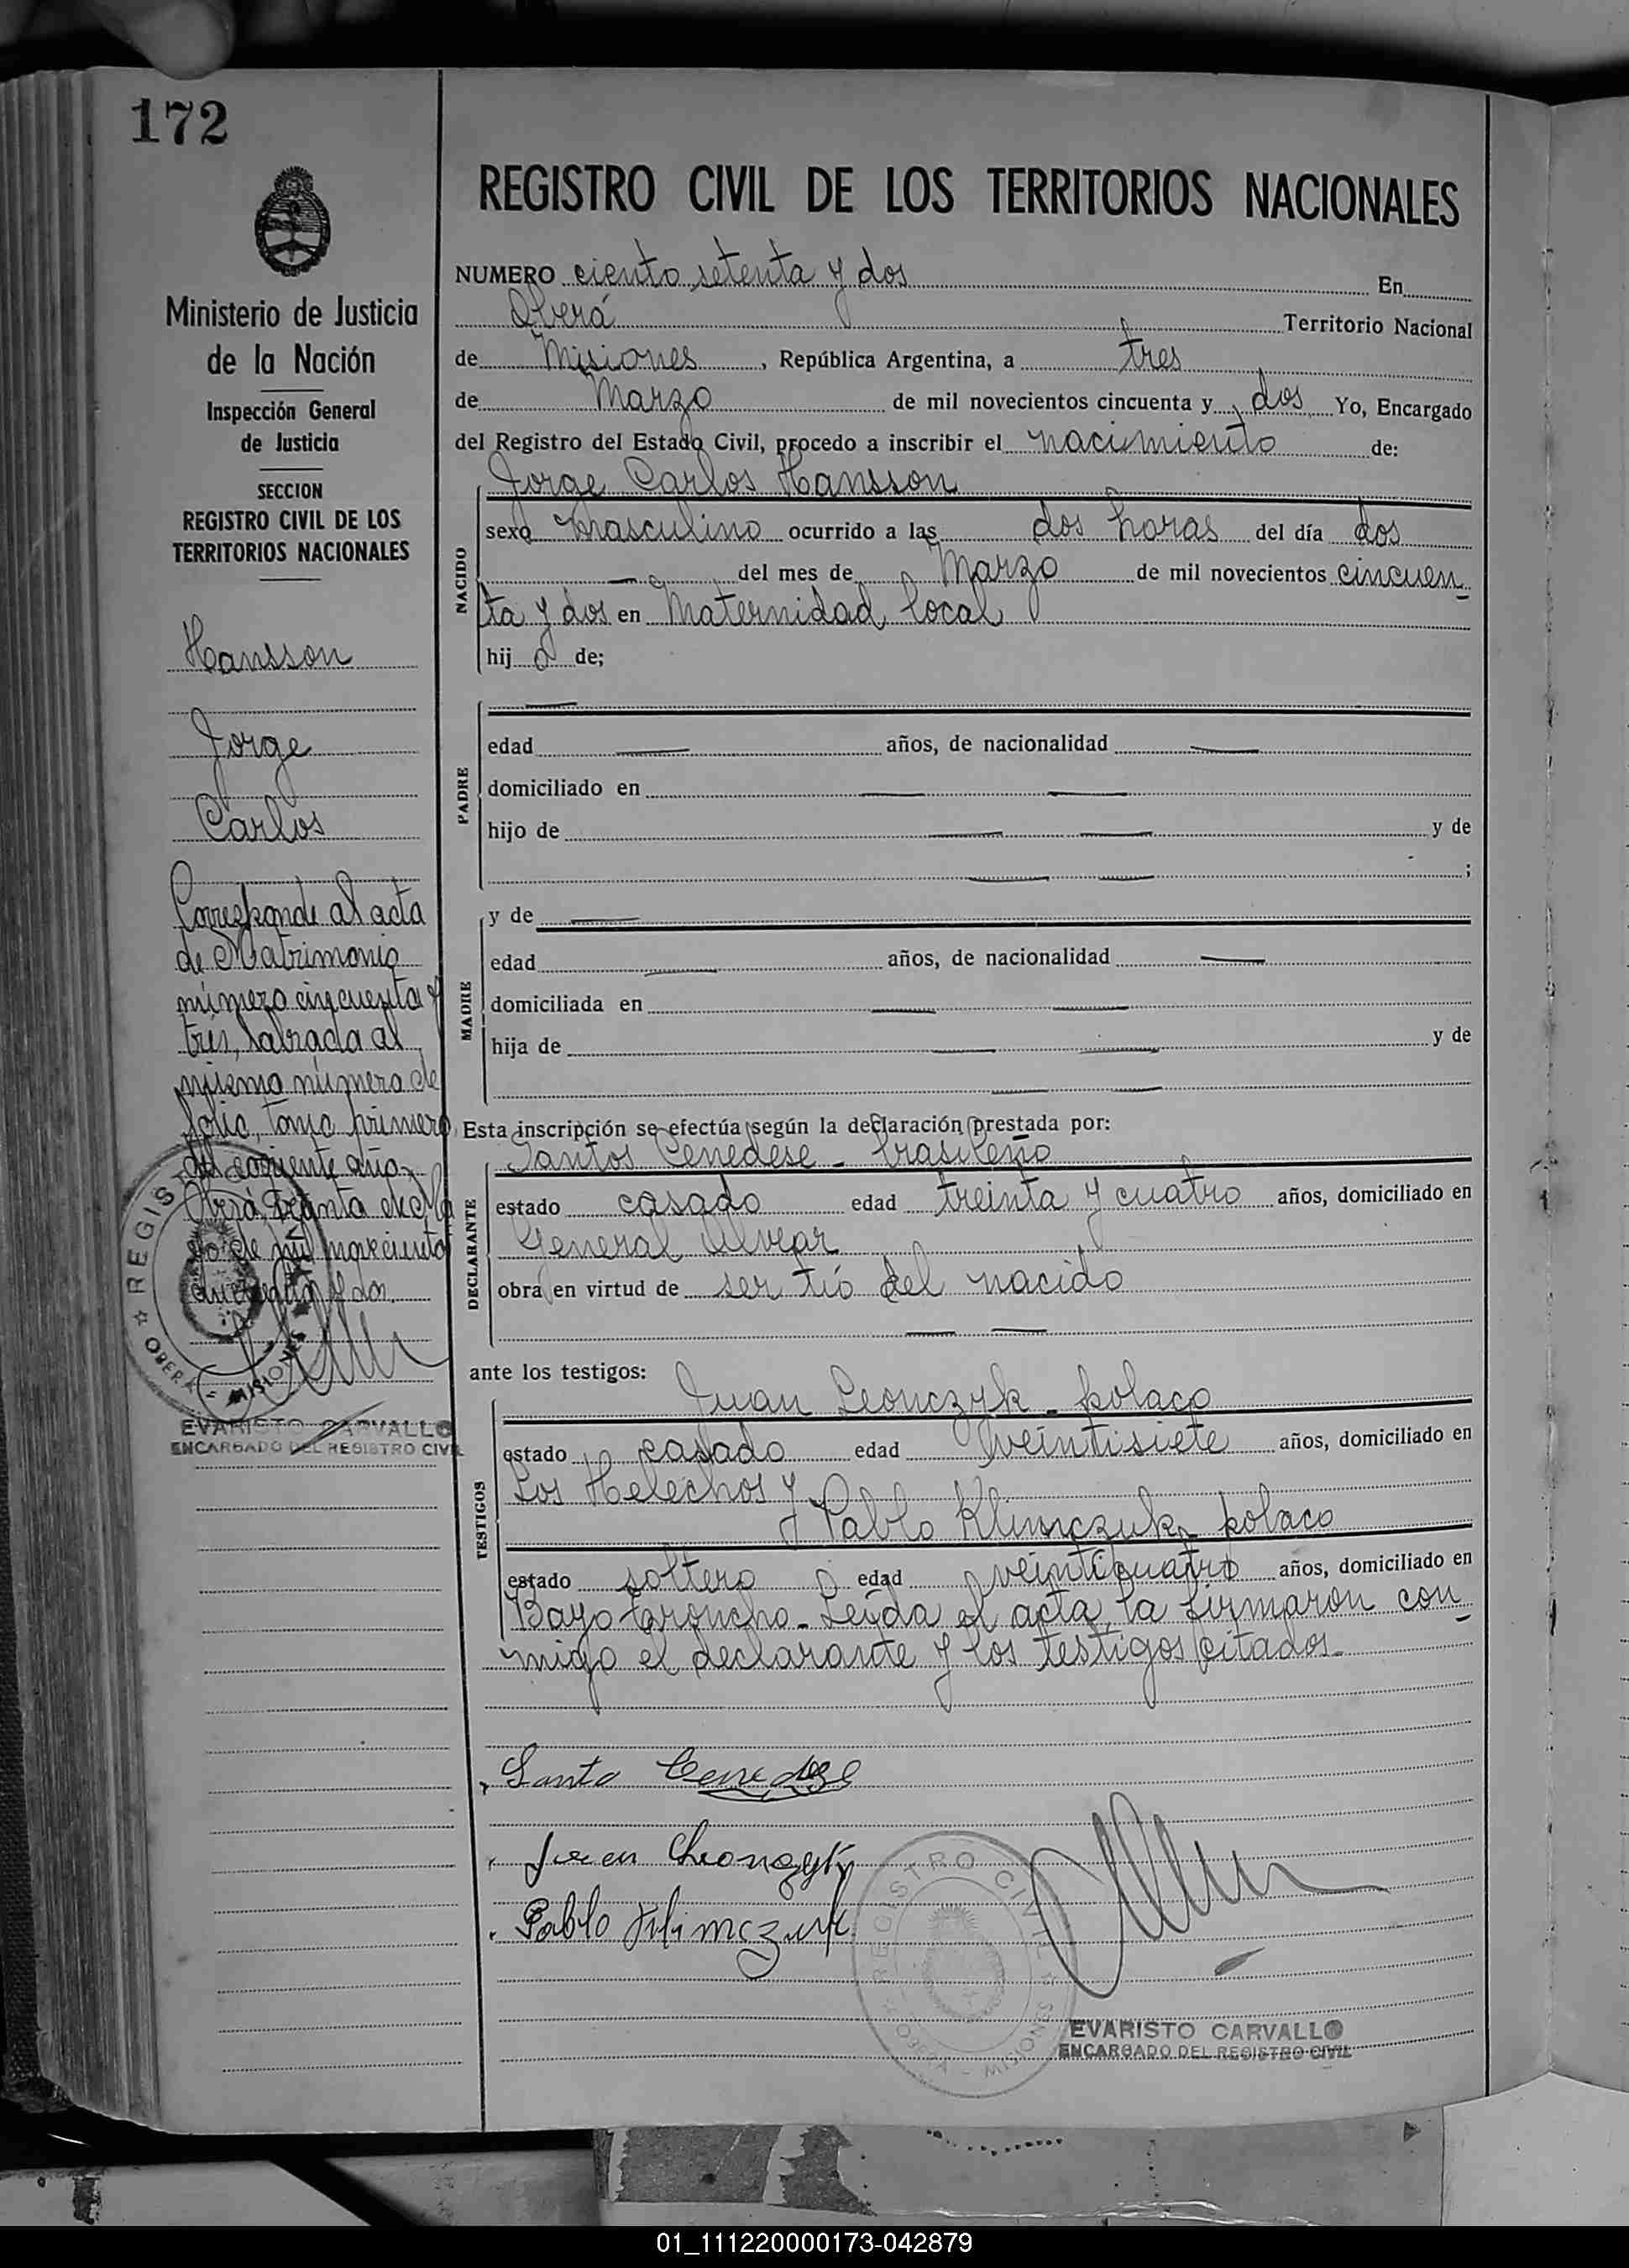 172
Ministerio de Justicia
de la Nación
Inspección General
de Justicia
SECCION
REGISTRO CIVIL DE LOS
TERRITORIOS NACIONALES
Hansson
Jorge
Carlos
Corresponde al acta
de Matrimonio
número cincuenta y
tres, labrada al
mismo número de
folio, tomo primero
del corriente año.
Oberá,
de mil novecientos
cincuenta y dos.
REGIS
OBERA = MISIONES
EVARISTO CARVALLO
ENCARGADO DEL REGISTRO CIVIL
REGISTRO CIVIL DE LOS TERRITORIOS NACIONALES
NUMERO ciento setenta y dos En
Oberá Territorio Nacional
de Misiones, República Argentina, a tres
de Marzo de mil novecientos cincuenta y dos Yo, Encargado
del Registro del Estado Civil, procedo a inscribir el nacimiento de:
Jorge Carlos Hansson
NACIDO
sexo masculino ocurrido a las dos horas del día dos
— del mes de Marzo de mil novecientos cincuen
ta y dos en Maternidad local
hijo de;
PADRE
—
edad — años, de nacionalidad —
domiciliado en — —
hijo de — — y de
— — ;
MADRE
y de —
edad — años, de nacionalidad —
domiciliada en — —
hija de — — y de
— —
Esta inscripción se efectúa según la declaración prestada por:
DECLARANTE
Santos Cenedese - brasileño
estado casado edad treinta y cuatro años, domiciliado en
General Alvear
obra en virtud de ser tío del nacido
— —
ante los testigos:
TESTIGOS
Juan Leonczyk - polaco
estado casado edad veintisiete años, domiciliado en
Los Helechos y
Pablo Klimczuk - polaco
estado soltero edad veinticuatro años, domiciliado en
Bayo Troncho - Leída el acta, la firmaron con
migo el declarante y los testigos citados.
Santo Cenedese
Juan
Pablo Klimczuk
REGISTRO CIVIL
OBERA - MISIONES
EVARISTO CARVALLO
ENCARGADO DEL REGISTRO CIVIL
01_111220000173-042879